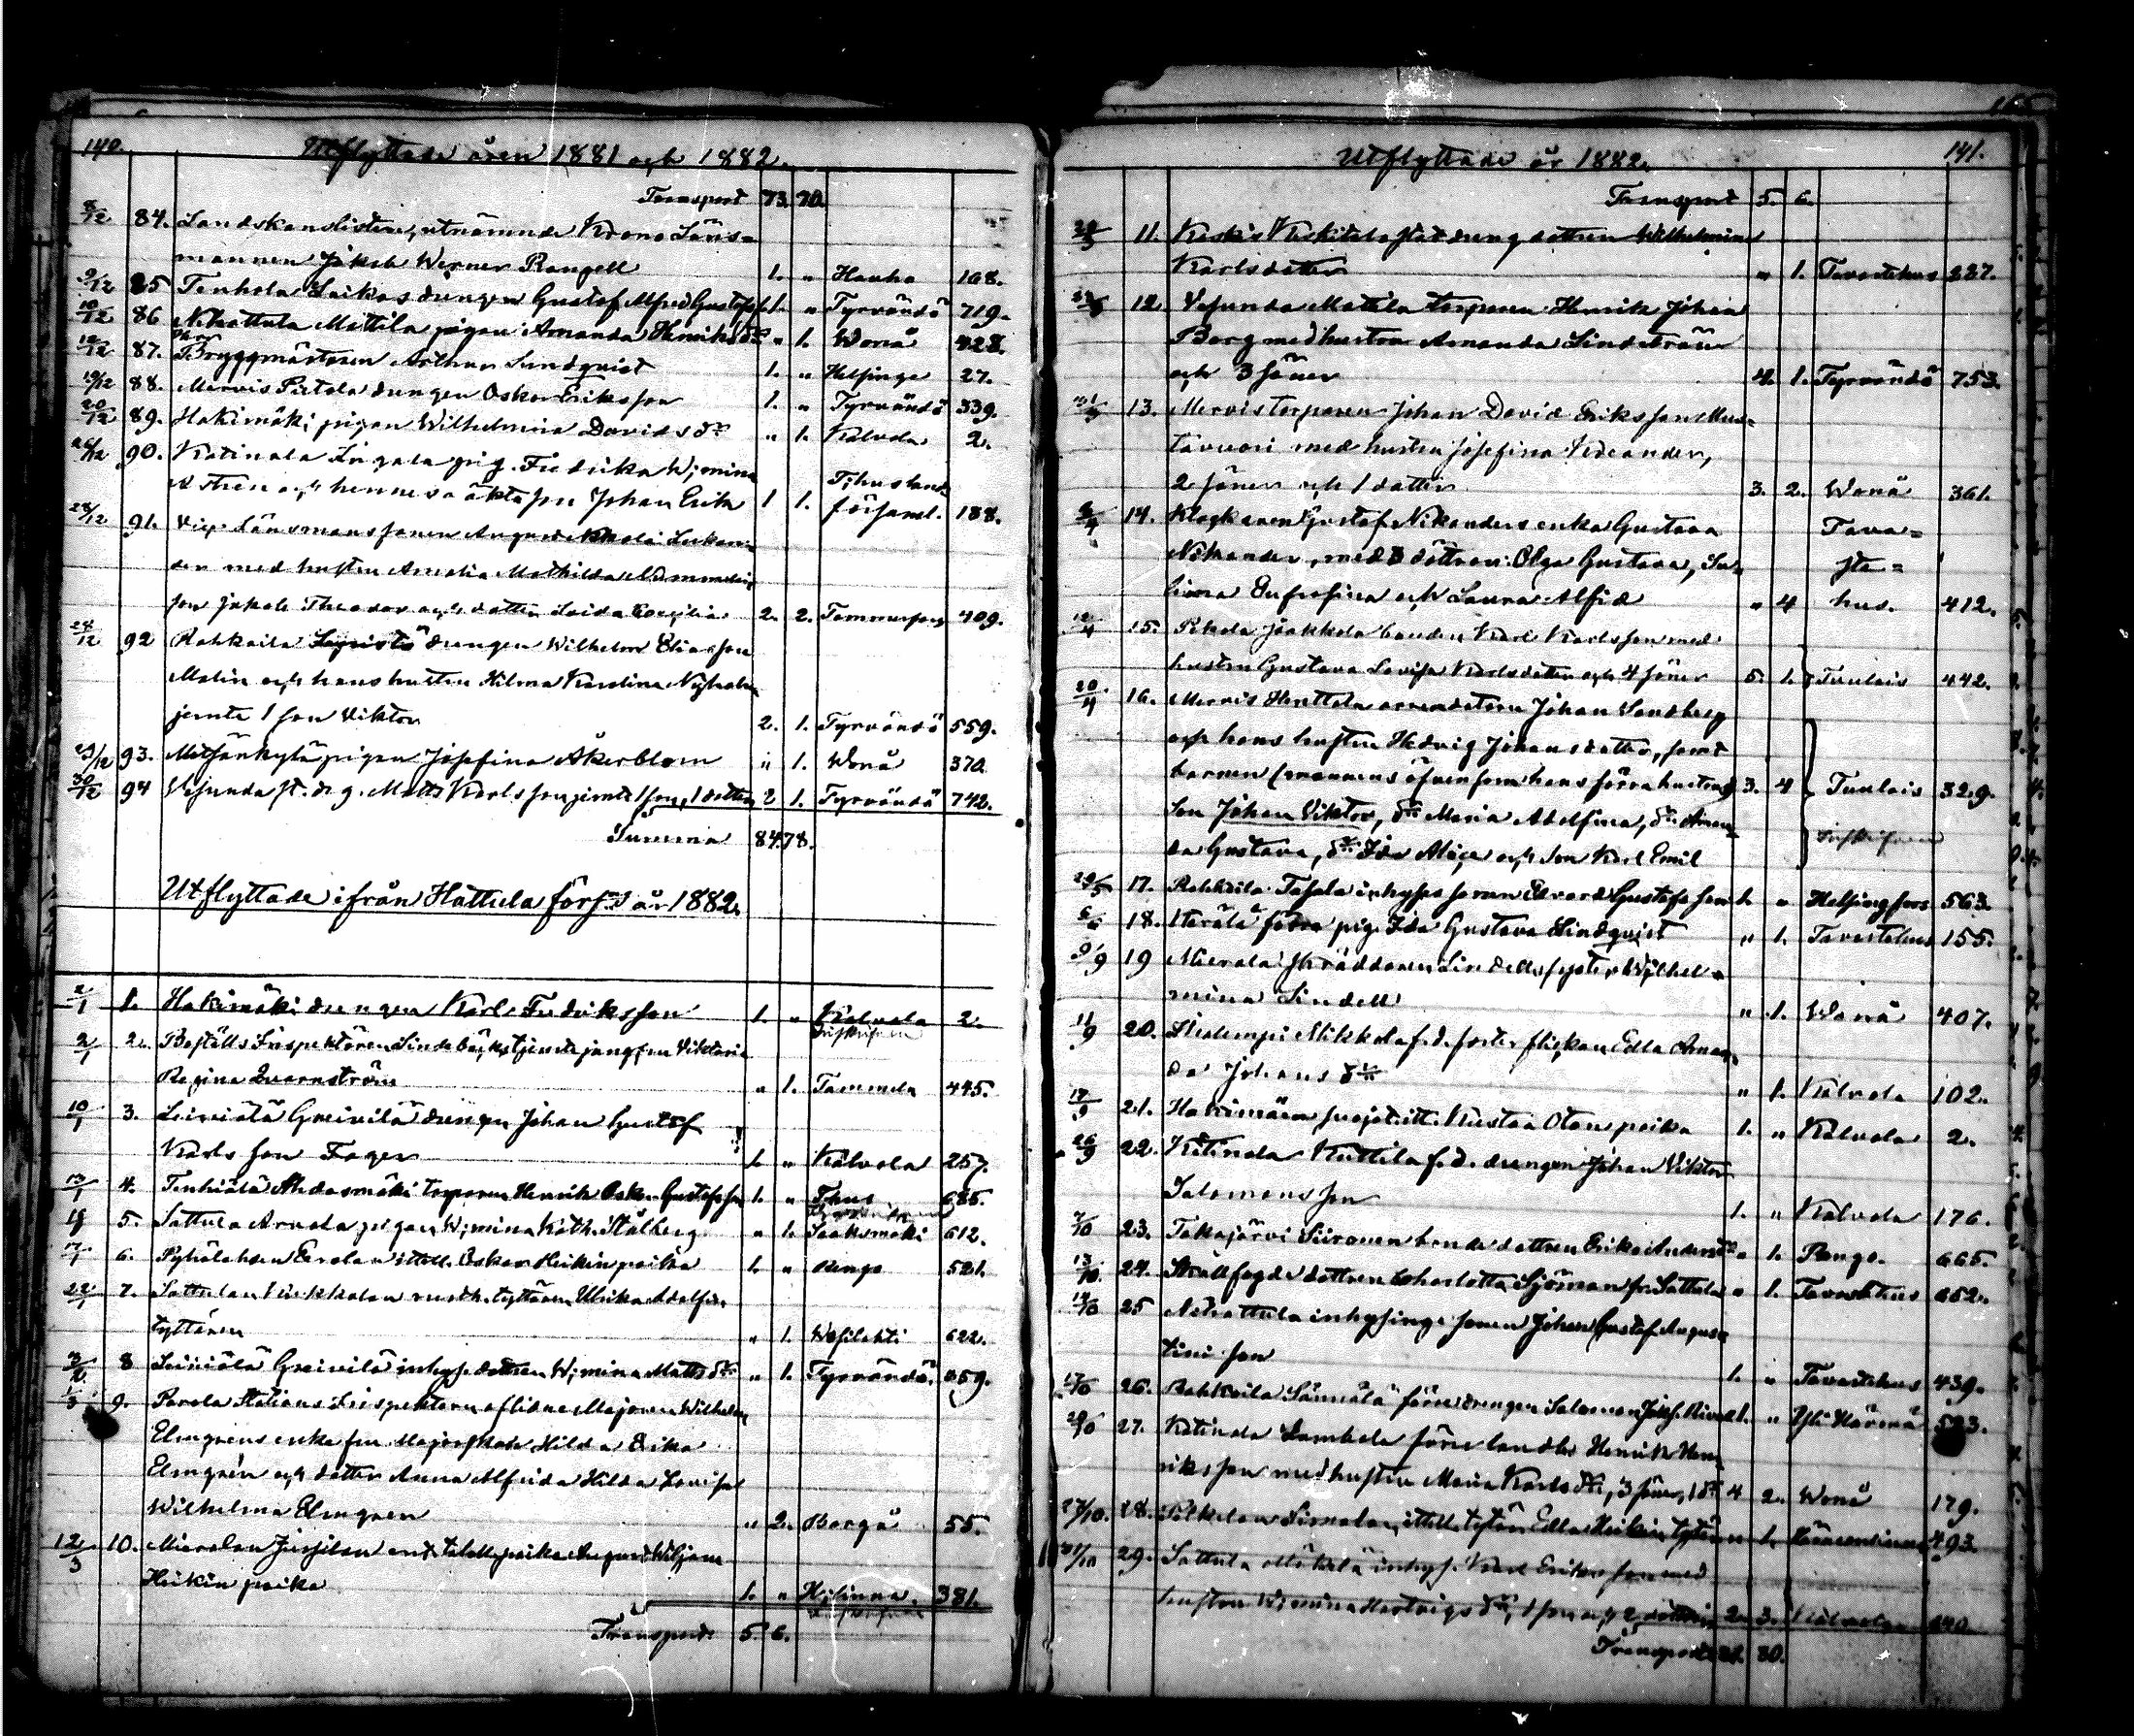 140.
Utflyttade åren 1881 och 1882.
Transport 73. 70.
8/12 84. Landskanslisten, utnämnde Krono Läns=
mannen Jakob Werner Rangell 1. " Hauho 168.
9/12 85 Tenhola Laikas drengen Gustaf Alfred Gustafss. 1. " Tyrvändö 719.
10/12 86 N. hattula Mattila pigan Amanda Henriksdr " 1. Wonå 428.
12/12 87. Bryggmästaren Arthur Sundqvist 1. " Helsinge 27.
19/12 88. Mervis Pietola drengen Oskar Eriksson 1. " Tyrvändö 339.
20/12 89. Hakimäki pigan Wilhelmina Davidsdr " 1. Kalvola 2.
90. Katinala Ingala pig. Fredrika W;mina
och hennes oäkta son Johan Erik 1 1. T;hus lands förhaml. 188.
28/12 91. Länsmans sonen August Nikolai
med hustru Amalia Mathilda
son Jakob Theodor och dotter Laida Cecilia 2. 2. Tammerfors 409.
28/12 92 Rahkoila drengen Wilhelm Eliasson
Malin och hans hustru Hilma Karolina
jemte 1 son Viktor 2. 1. Tyrvändö 559.
29/12 93. Metsänkylä pigan Josefina Åkerblom " 1. Wonå 370.
30/12 94 Vesunda st. dg. Matts Karlsson jemte 1 son, 1 dotter 2 1. Tyrvändö 742.
Summa 84. 78.
Utflyttade ifrån Hattula förs. år 1882.
2/1 1. Hakimäki drengen Karl Fredriksson 1. " Kalvola 2.
2/1 2. Boställs Inspektoren Lindebäcks tjenstejungfru Viktoria
Regina Quarnström " 1. Tammela 445.
10/1 3. Leiniälä Greivilä drengen Johan Gustaf
Karlsson Fager 1. " Kalvola 257.
13/1 4. Tenhiälä Ahdasmäki torparen Henrik Oskar Gustafsson 1. " T;hus 685.
5. Sattula Arvola pigan W;mina Kath. Stålberg " 1. Sääksmäki 612.
17/1 6. Pyhälahden Eerolan ittell. Oskar Heikinpoika 1. " Renge 521.
22/1 7. Sattulan Kirkkolan rusth. tyttären Ulrika Adolfin
tyttären " 1. Wesilahti 622.
8 Leiniälä Greivilä inhys. dottren W;mina Mattsdr " 1. Tyrvändö 259.
1/3 9. Parola Stations Inspektoren aflidne Majoren Wilhelm
Elmgrens enka fru Majorskan Hilda Erika
Elmgrén och dotter Anna Alfrida Hilda Lovisa
Wilhelma Elmgren " 2. Borgå 55.
12/3 10. Mierolan Jussilan poika August Wiljam
Heikinpoika 1. " Hlinna. 381.
Transport 5 6.
141.
Utflyttade år 1882.
Transport 5. 6.
11. Keskis Keskitalo dottren Wilhelmina
Karlsdotter " 1. Tavastehus 237.
12. Vesunda Mattila torparen Henrik Johan
Borg med hustru Amanda Lindström
och 3 söner 4. 1. Tyrvändö 753.
13. Mervis torparen Johan David Eriksson Mus=
tavuori med hustru Josefina Kreander,
2 söner och 1 dotter 3. 2. Wonå 361.
14. Klockaren Gustaf Nikanders enka Gustava
Nikander, med 3 döttrar: Olga Gustava, Se=
lima Eufrosina och Laura Alfid " 4 Tava= ste= hus. 412.
15. Pekola Jaakkola bonden Karl Karlsson med
hustru Gustava Lovisa Karlsdotter och 4 söner 5. 1. Tuulois 442.
20/4 16. Mervis Henttola arrendatorn Johan Sandberg
och hans hustru Hedvig Johansdotter, samt
barnen (mannens äfven som hans förra hustrus) 3. 4 Tuulois 329.
son Johan Viktor, dr Maria Adolfina, dr Aman=
da Gustava, dr Ida Alice och son Karl Emil
17. Rahkoila Tahola inhyses sonen Edvard Gustafsson 1. " Helsingfors 563.
6/6 18. Herälä förra pig. Ida Gustava Lindqvist " 1. Tavastehus 155.
5/9 19 Mierola skräddaren Lindells syster Wilhel=
mina Lindell " 1. Wanå 407.
11/9 20. Mikkola f. d. foster flickan Edla Aman=
da Johansdr " 1. Kalvola 102.
21. Hakimäen itt. Kustaa Otonpoika 1. " Kalvola 2.
26/9 22. Katinala Kuttila f. d. drengen Johan Viktor
Salomonsson 1. " Kalvola 176.
7/10 23. Takajärvi Siiranen bonde dottren Erika Andersdr " 1. Renge. 665.
13/10. 24. Stallfogde dottren Charlotta Sjöman fr. Sattula " 1. Tavastehus 652.
14/10 25 Nihattula inhysinge sonen Johan Gustaf August
tini son 1. " Tavastehus 439.
17/10 26. Rahkoila förre drengen Salomon Josef 1. " Yli Härmä 523.
27. Katinala Lambola förre landb. Henrik Hen=
riksson med hustru Maria Karlsdr, 3 söner, 1 dr 4 2. Wonå 179.
27/10. 28. Pelkolan ittell. tytär Edla Heikin tytär " 1. Hämeenlinna 493
31/10 29. Sattula Mäkelä inhys. Karl Eriksson med
hustru W;mina Hartvigsdr, 1 son och 2 döttrar 2. 3. Kalvola 640
Transport 31. 30.